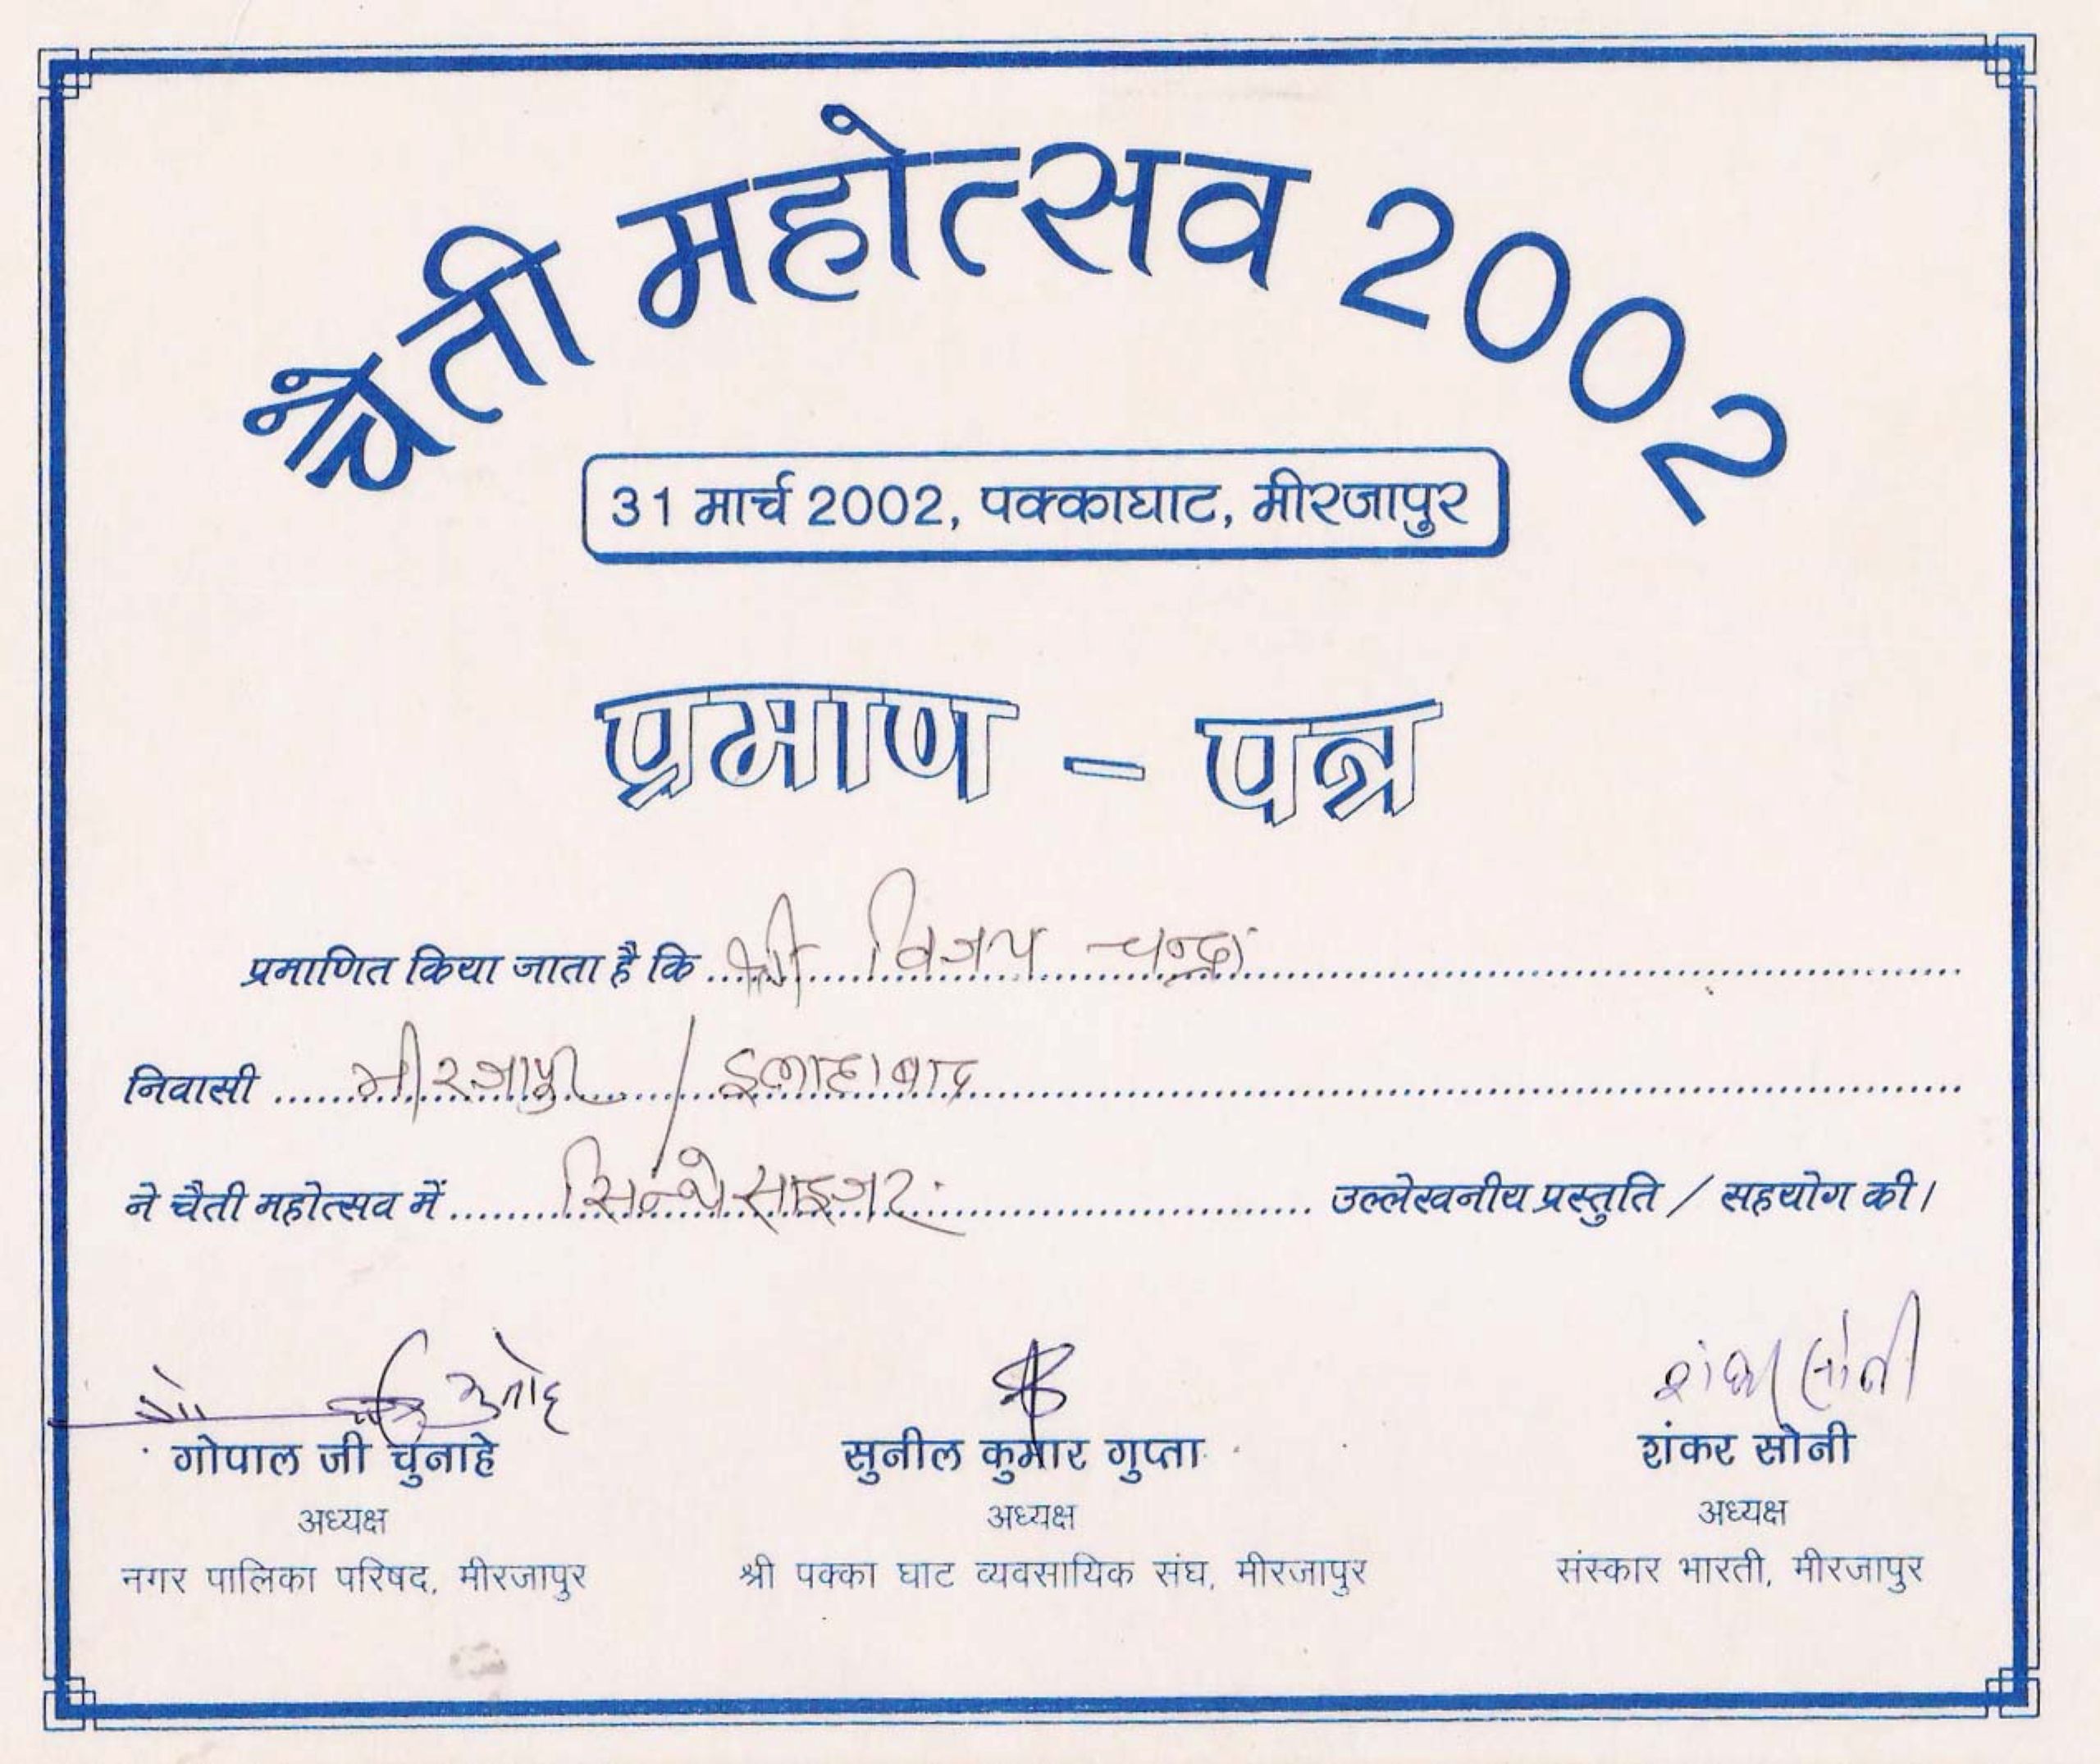 चैती महोत्सव 2002
31 मार्च 2002, पक्काघाट, मीरजापुर
प्रमाण - पत्र
प्रमाणित किया जाता है कि श्री विजय चन्द्रा
निवासी मीरजापुर / इलाहाबाद
ने चैती महोत्सव में सिन्थेसाइजर उल्लेखनीय प्रस्तुति / सहयोग की।
शंकर सोनी
गोपाल जी चुनाहे सुनील कुमार गुप्ता शंकर सोनी
अध्यक्ष अध्यक्ष अध्यक्ष
नगर पालिका परिषद, मीरजापुर श्री पक्का घाट व्यवसायिक संघ, मीरजापुर संस्कार भारती, मीरजापुर